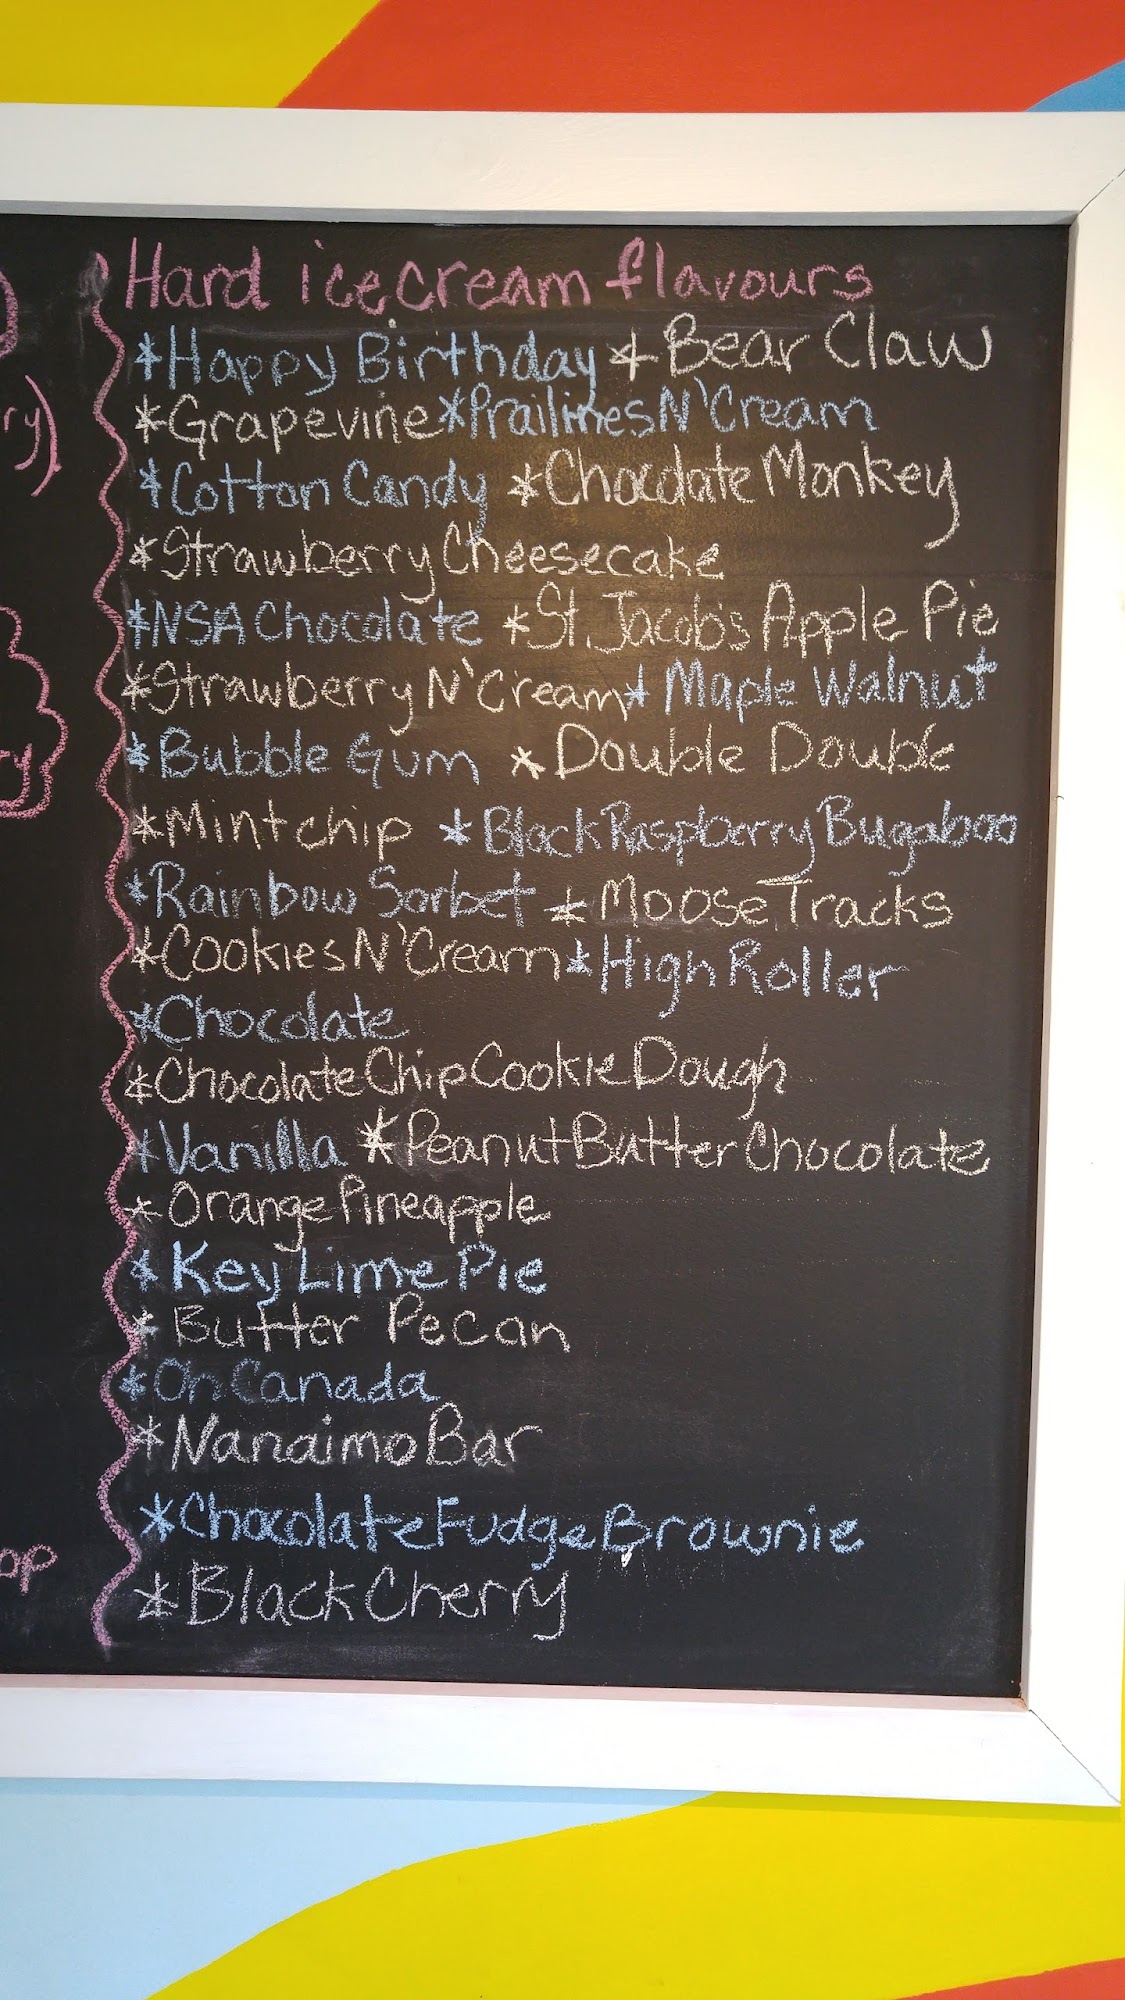 Hard ice cream flavours
*Happy Birthday *Bear Claw
*Grapevine *Prailines N' Cream
*Cotton Candy *Chocolate Monkey
*Strawberry Cheesecake
*NSA Chocolate *St. Jacob's Apple Pie
*Strawberry N' Cream * Maple Walnut
*Bubble Gum *Double Double
*Mint chip *Black Raspberry Bugaboo
*Rainbow Sorbet *Moose Tracks
*Cookies N' Cream *High Roller
*Chocolate
*Chocolate Chip Cookie Dough
*Vanilla *Peanut Butter Chocolate
*Orange Pineapple
*Key Lime Pie
*Butter Pecan
*Oh Canada
*Nanaimo Bar
*Chocolate Fudge Brownie
*Black Cherry
ry)
ry
op